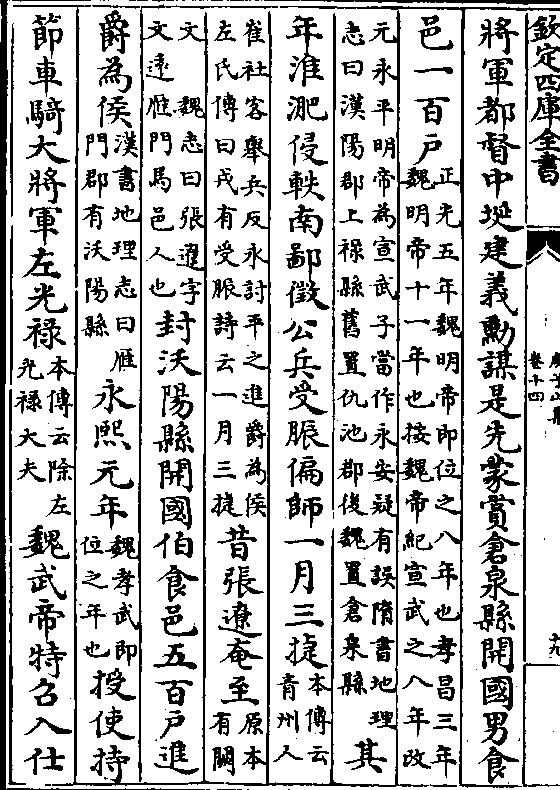 欽定四庫全書
卷十四
十九
將軍都督中埏建義勳謀是先蒙賞倉泉縣開國男食
邑一百戶
正光五年魏明帝即位之八年也孝昌三年
魏明帝十一年也按魏帝紀宣武之八年改
元永平明帝為宣武子當作永安疑有誤隋書地理
志曰漢陽郡上祿縣舊置仇池郡後魏置倉泉縣
其
年淮淝侵軼南鄙徵公兵受脤偏師一月三捷
本傳云
青州人
崔社客舉兵反永討平之進爵為侯
左氏傳曰戎有受脤詩云一月三捷
昔張遼奄至
原本
有闕
文 魏志曰張遼字
文遠雁門馬邑人也
封沃陽縣開國伯食邑五百戶進
爵為侯
漢書地理志曰雁
門郡有沃陽縣
永熙元年
魏孝武即
位之年也
授使持
節車騎大將軍左光祿
本傳云除左
光祿大夫
魏武帝特召入仕